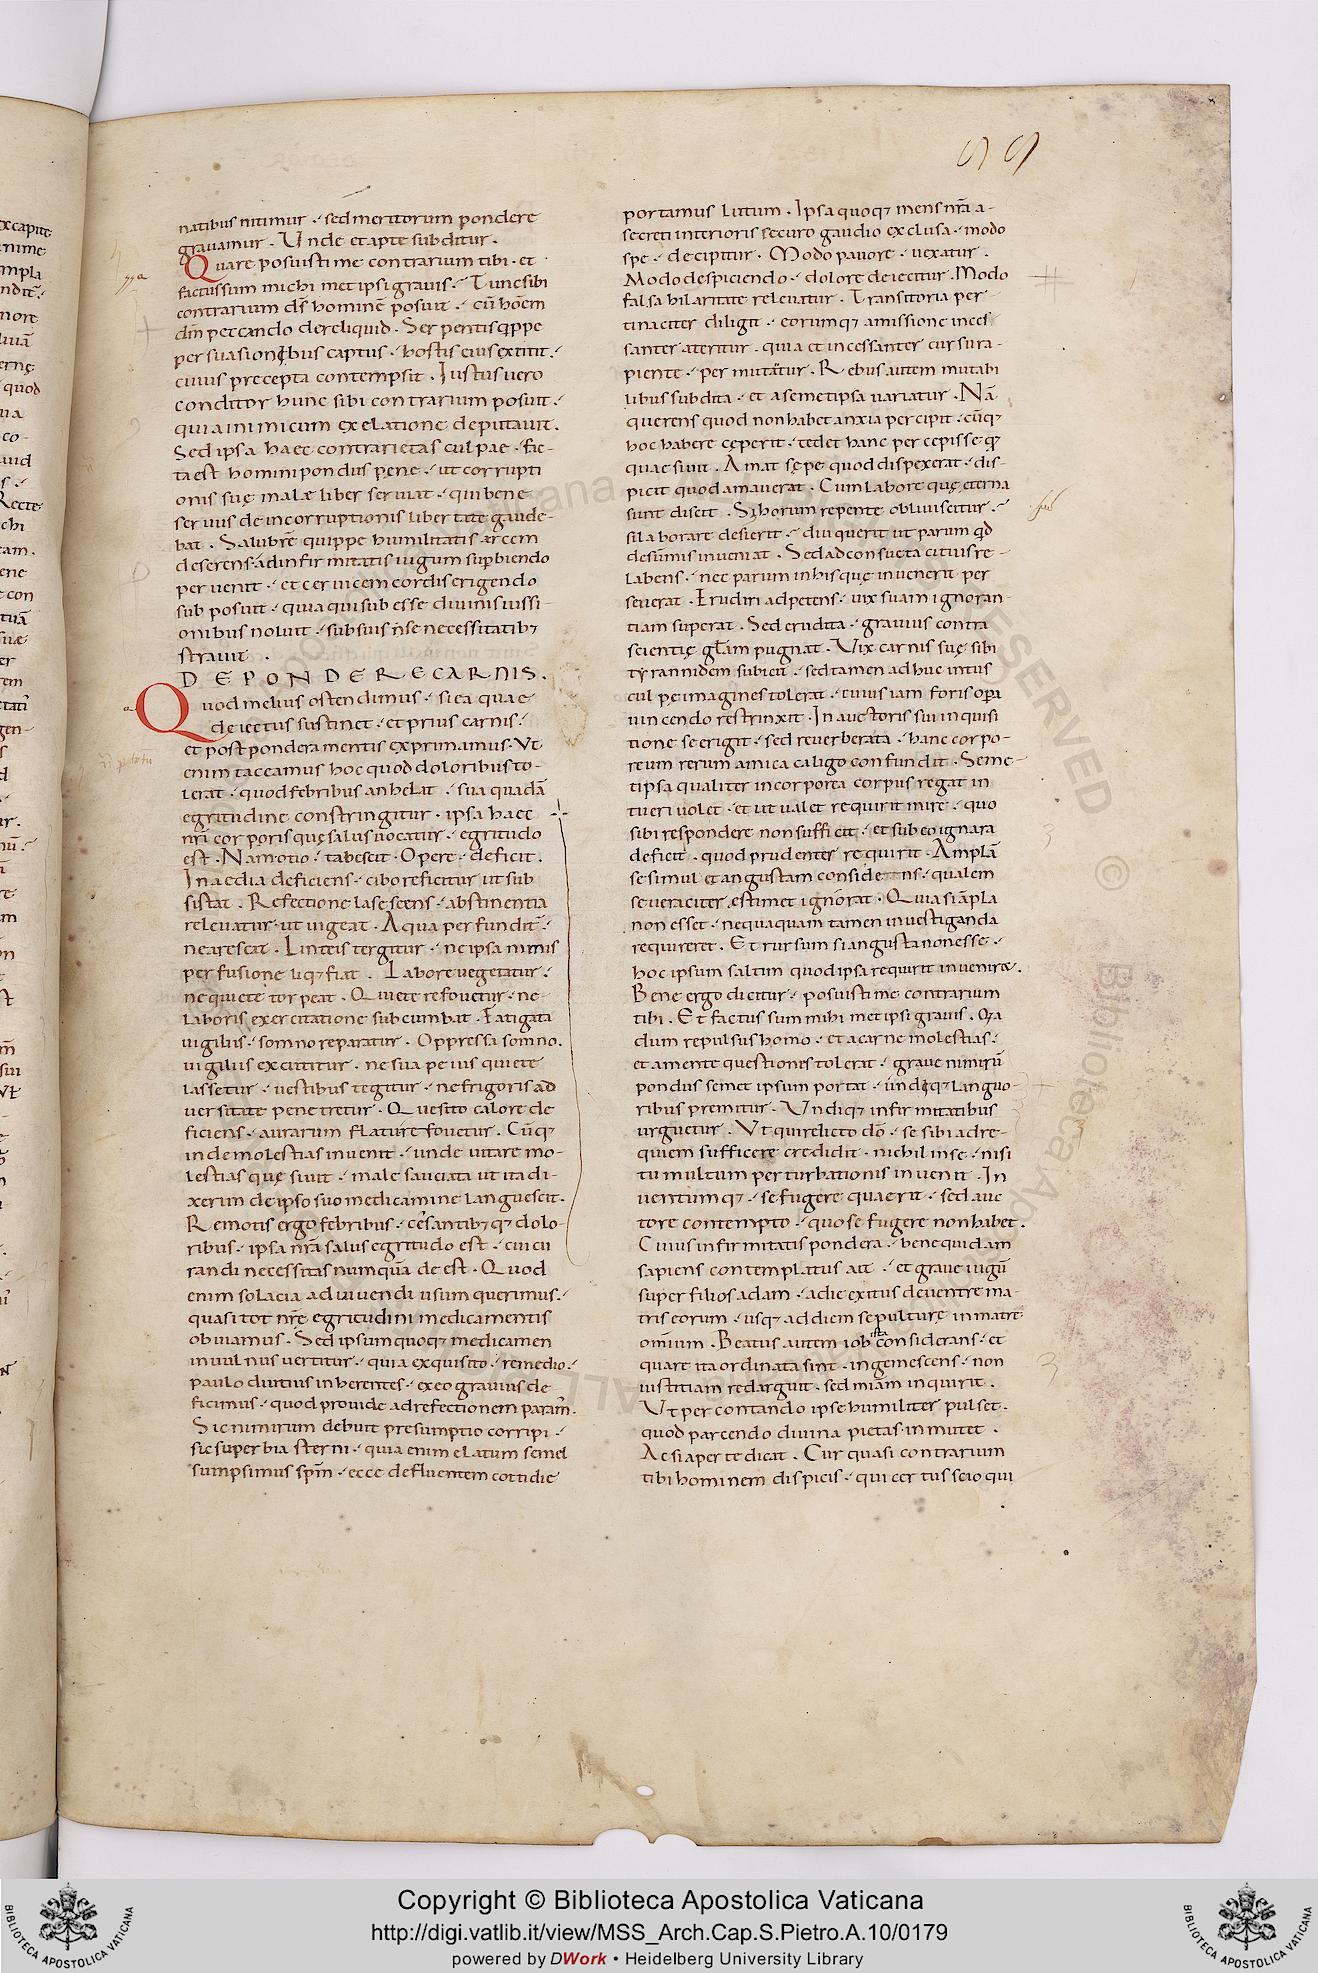 99
natibus nitimur. sed meritorum pondere
gravamur. Unde et apte subditur.
Quare posuisti me contrarium tibi. et
factus sum michi met ipsi gravis. Tunc sibi
contrarium ds̄ hominē posuit. cū hoēm
dm̄ peccando dereliquid. Serpentis qippe
persuasionibus captus. hostis eius extitit.
cuius precepta contempsit. Iustus uero
conditor hunc sibi contrarium posuit.
quia inimicum ex elatione deputauit.
Sed ipsa haec contrarietas culpae. fac-
ta est homini pondus pęne. ut corrupti
onis suę malæ liber seruiat. qui bene
seruus de incorruptionis libertate gaude-
bat. Salubrē quippe humilitatis arcem
deserens. ad infirmitatis iugum supbiendo
peruenit. et ceruicem cordis erigendo
subposuit. quia qui subesse diuinis iussi-
onibus noluit. sub suis n̄se necessitatibꝫ
strauit.
DE PONDERE CARNIS.
Quod melius ostendimus. si ea quae
deiectus sustinet. et prius carnis.
et post pondera mentis exprimamus. Ut
enim taceamus hoc quod doloribus to-
lerat. quod febribus anhelat. sua quadā
egritudine constringitur. ipsa haec
nr̄i corporis quę salus uocatur. egritudo
est. Nam otio. tabescit. Opere. deficit.
Inaedia deficiens. cibo reficitur ut sub
sistat. Refectione lasescens. abstinentia
releuatur. ut uigeat. Aqua perfundit̄.
ne arescat. Linteis tergitur. ne ipsa nimis
perfusione liqꝫfiat. Labore uegetatur.
ne quiete torpeat. Quiete refouetur. ne
laboris exercitatione subcumbat. Fatigata
uigiliis. somno reparatur. Oppressa somno.
uigiliis excititur. ne sua peius quiete
lassetur. uestibus tegitur. ne frigoris ad
uersitate penetretur. Quesito calore de
ficiens. aurarum flatu refouetur. Cūqꝫ
inde molestias inuenit. unde uitare mo-
lestias quę siuit. male sauciata ut ita di-
xerim de ipso suo medicamine languescit.
Remotis ergo febribus. cēsantibꝫqꝫ dolo-
ribus. ipsa nr̄a salus egritudo est. cui cu
randi necessitas numquā deest. Quod
enim solacia ad uiuendi usum querimus.
quasi tot nr̄ę egritudini medicamentis
obuiamus. Sed ipsum quoqꝫ medicamen
in uulnus uertitur. quia exquisito. remedio.
paulo diutius inherentes. ex eo grauius de
ficimus. quod prouide ad refectionem param̄.
Sic nimirum debuit presumptio corripi.
sic superbia sterni. quia enim elatum semel
sumpsimus spm̄. ecce defluentem cottidie
portamus lutum. Ipsa quoqꝫ mens nr̄a a-
secreti interioris securo gaudio exclusa. modo
spe. decipitur. Modo pauore. uexatur.
Modo despiciendo. dolore deiecitur. Modo
falsa hilaritate releuatur. Transitoria per
tinaciter diligit. eorumqꝫ amissione inces
santer ateritur. quia et incessanter cursu ra-
piente. permutātur. Rebus autem mutabi
libus subdita. et a semetipsa uariatur. Nā
querens quod non habet anxia percipit. cūqꝫ
hoc habere cęperit. tedet hanc percepisse qꝫ
quaesiuit. Amat sępe quod dispexerat. dis-
picit quod amauerat. Cum labore quę eterna
sunt discit. Sꝫ horum repente obliuiscitur.
si laborare desierit. diu querit ut parum qd
de sūmis inueniat. Sed ad consueta citius re-
labens. nec parum in his quę inuenerit per
seuerat. Erudiri adpetens. uix suam ignoran-
tiam superat. Sed erudita. grauius contra
scientię gl̄am pugnat. Vix carnis suę sibi
tyrannidem subicit. sed tamen adhuc intus
culpę imagines tolerat. cuius iam foris opa
uincendo restrinxit. In auctoris sui inquisi
tione se erigit. sed reuerberata. hanc corpo-
reum rerum amica caligo confundit. Seme-
tipsa qualiter incorporta corpus regat in
tueri uolet. et ut ualet requirit mire. quo
sibi respondere non sufficit. et sub eo ignara
deficit. quod prudenter requirit. Amplā
se simul et angustam considerans. qualem
se ueraciter estimet ignorat. Quia si āpla
non esset. nequaquam tamen inuestiganda
requireret. Et rursum si angusta non esse.
hoc ipsum saltim quod ipsa requirit inveniræ.
Bene ergo dicitur. posuisti me contrarium
tibi. Et factus sum mihi met ipsi grauis. Qꝫa
dum repulsus homo. et a carne molestias.
et a mente questionis tolerat. graue nimirū
pondus semet ipsum portat. undiqꝫ languo-
ribus premitur. Undiqꝫ infirmitatibus
urguetur. Ut qui relicto dō. se sibi ad re-
quiem sufficere credidit. nichil in se. nisi
tumultum perturbationis inuenit. In
uentumqꝫ. se fugere quaerit. sed auc
tore contempto. quo se fugere non habet.
Cuius infirmitatis pondera. bene quidam
sapiens contemplatus ait. et graue iugū
super filios adam. a die exitus de uentre ma-
tris eorum. usqꝫ ad diem sepulture in matre
omīum. Beatus autem iob ista considerans. et
quare ita ordinata sint. ingemescens. non
iustitiam redarguit. sed miām inquirit.
Ut percontando ipse humiliter pulset.
quod parcendo diuina pietas inmutet.
Ac si aperte dicat. Cur quasi contrarium
tibi hominem dispicis. qui certus scio qui
Copyright © Biblioteca Apostolica Vaticana
http://digi.vatlib.it/view/MSS_Arch.Cap.S.Pietro.A.10/0179
powered by DWork • Heidelberg University Library
BIBLIOTECA APOSTOLICA VATICANA
BIBLIOTECA APOSTOLICA VATICANA